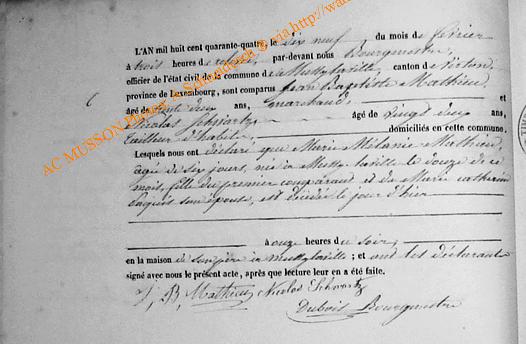 L'AN mil huit cent quarante-quatre, le dix neuf du mois de février
à trois heures de relevée, par-devant nous Bourgmestre,
officier de l'état civil de la commune de Mussy la ville canton de Virton
province de Luxembourg, sont comparus Jean Baptiste Mathieu,
âgé de trente deux ans, marchand, et
Nicolas Schwartz âgé de vingt deux ans,
tailleur d'habits, domiciliés en cette commune.
Lesquels nous ont déclaré que Marie Mélanie Mathieu,
agée de six jours, née à Mussy la ville le douze de ce
mois, fille du premier comparant et de Marie catherine
son épouse, est décédée le jour d'hier
à onze heures du soir,
en la maison de son père à mussy la ville; et ont les déclarants
signé avec nous le présent acte, après que lecture leur en a été faite.
J, B, Mathieu Nicolas Schwartz
Dubois Bourgmestre
AC MUSSON
via http://